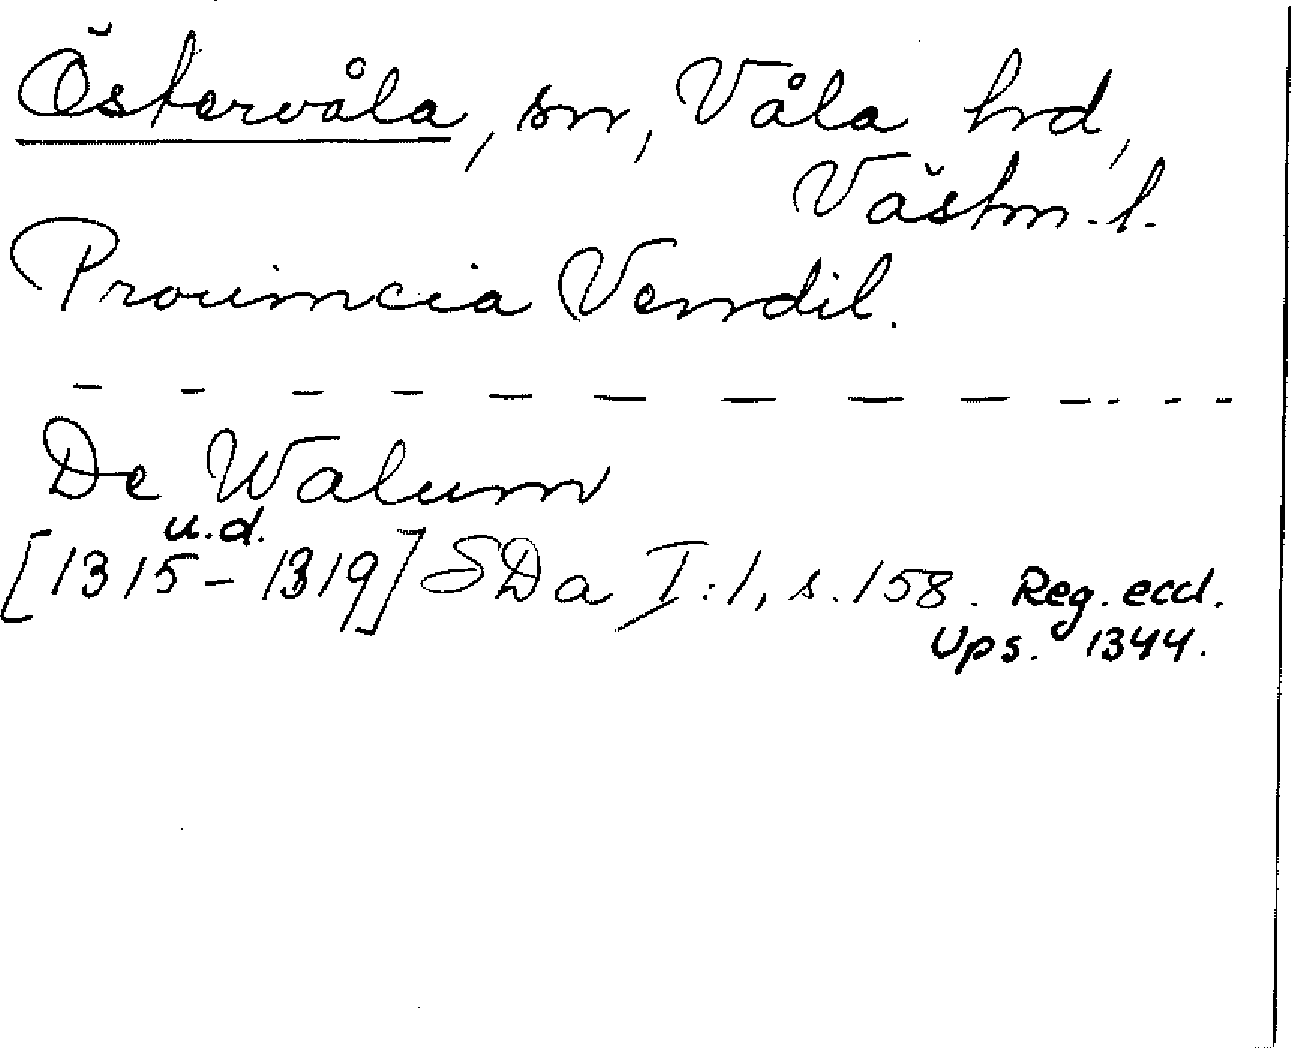 Östervåla, sn, Våla hrd,
Västm. l.
Prouincia Vendil.
- - - - - - - - - - - -
De Walum
u.d.
[1315-1319] SDa I:1, s. 158. Reg. eccl.
Ups. 1344.